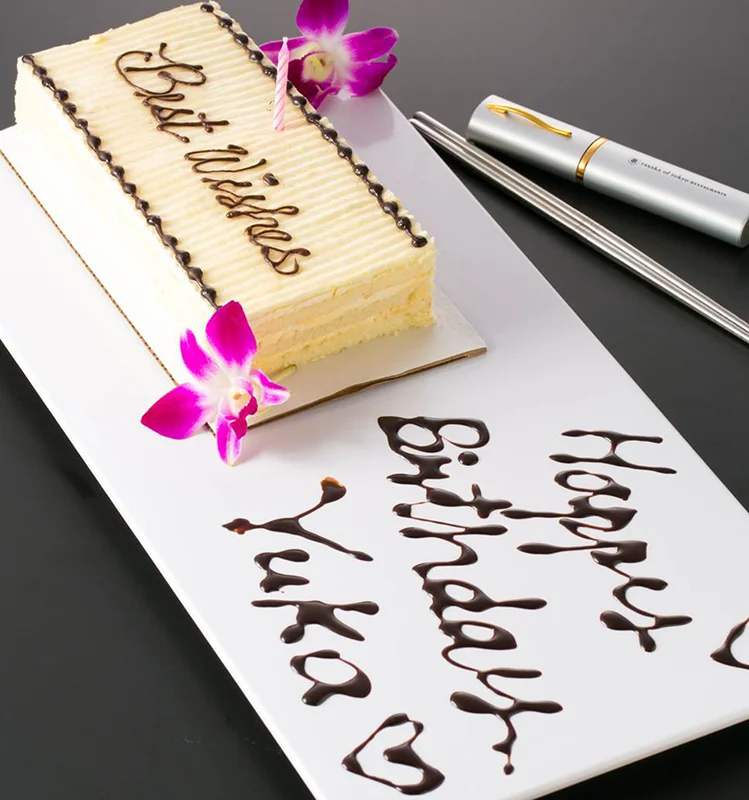 Best Wishes
Happy
Birthday
Yuka
TANAKA of TOKYO RESTAURANTS